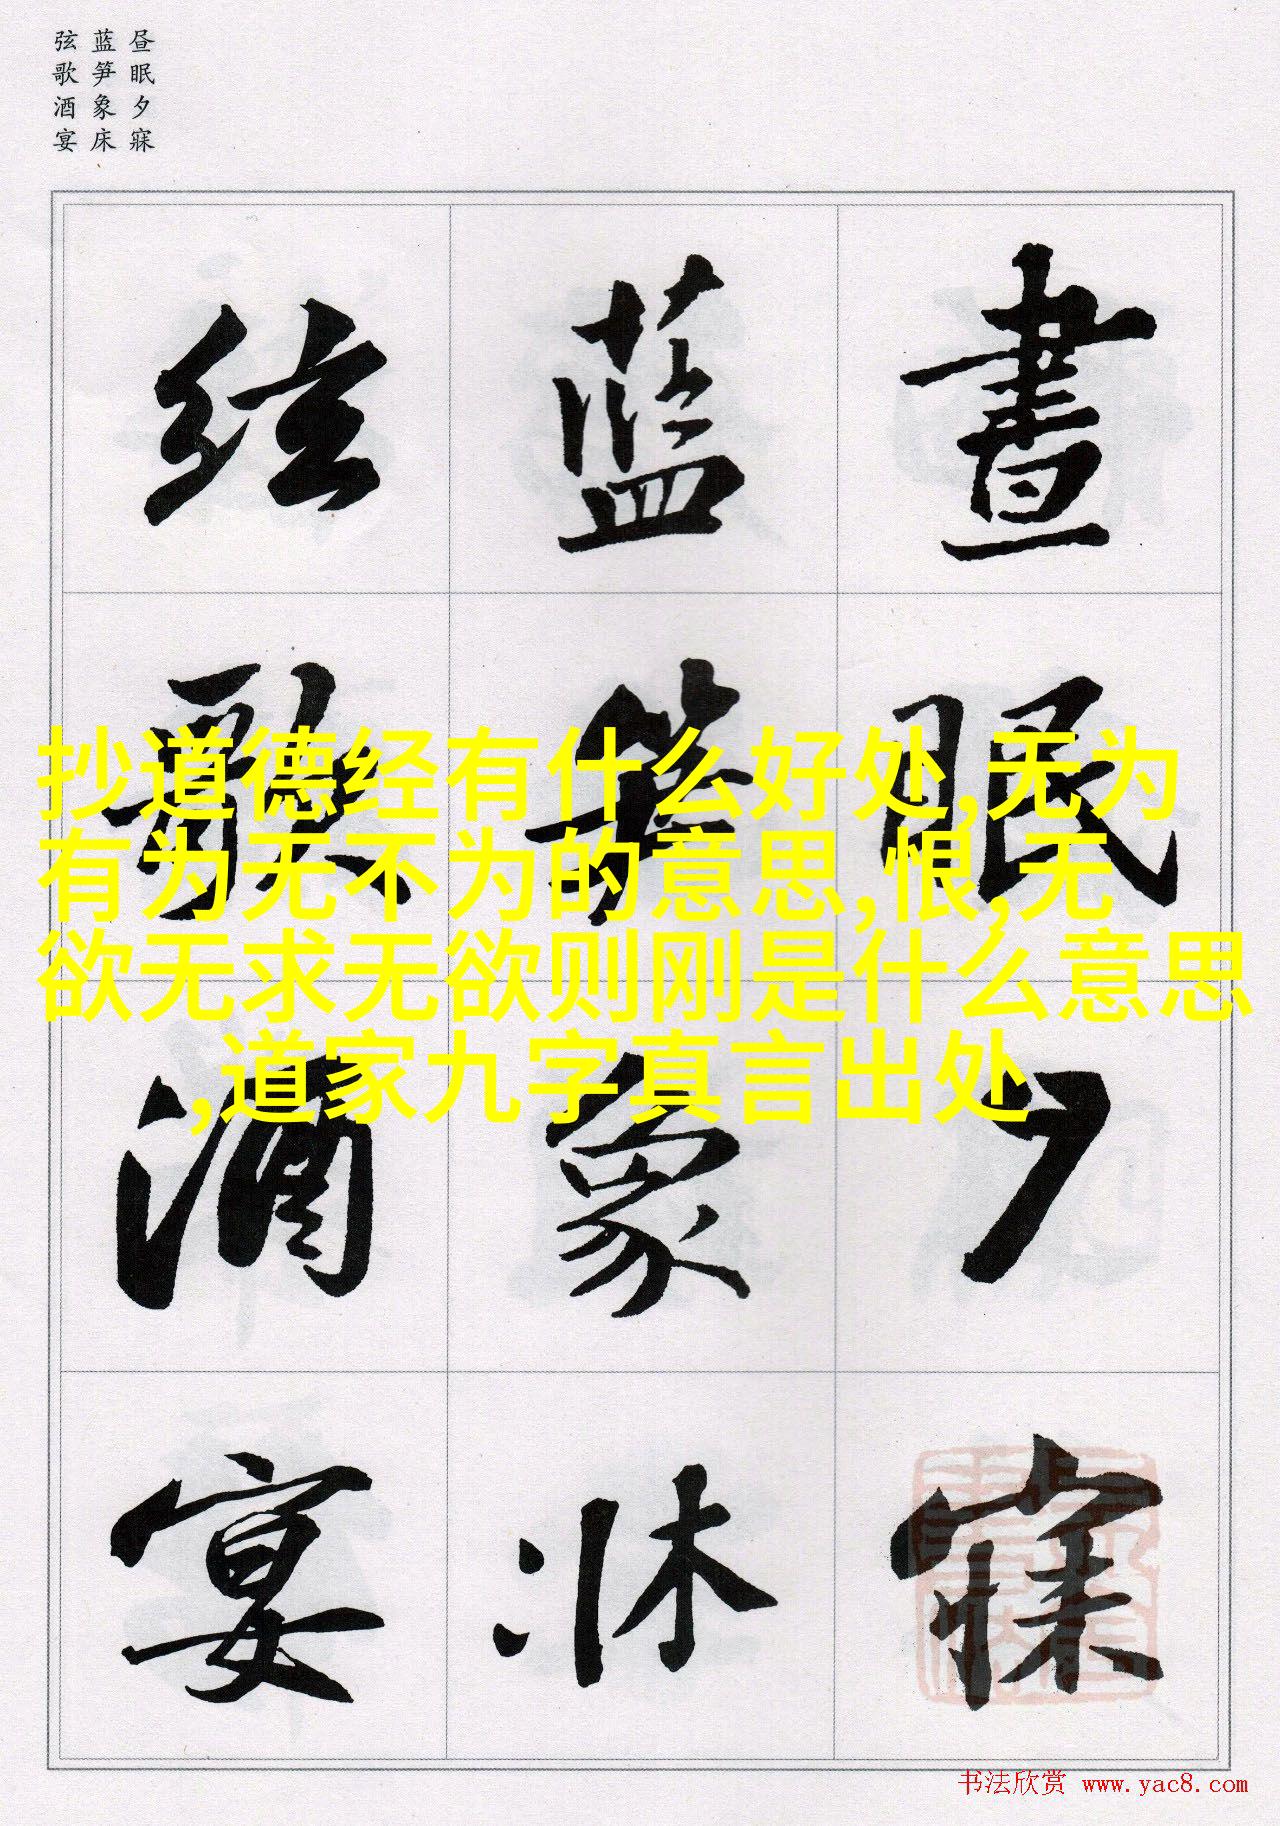 昼眠夕寐
蓝笋象床
弦歌酒宴
晝眠夕寐
藍笋象牀
絃歌酒宴
抄道德经有什么好处,无为
有为无不为的意思,恨,无
欲无求无欲则刚是什么意思
,道家九字真言出处
书法欣赏 www.yac8.com